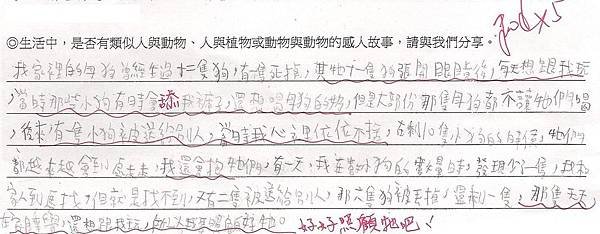 Good x5
◎生活中,是否有類似人與動物、人與植物或動物與動物的感人故事,請與我們分享。
我家裡的母狗曾經生過十二隻狗,有一隻死掉,其他十一隻狗張開眼睛後,每天想跟我玩
,當時那些小狗有時會舔我褲子,還想喝母狗的奶,但是大部份那隻母狗都不讓牠們喝
,後來有一隻小狗被送給別人,當時我心裡依依不捨,在剩10隻小狗的時候,牠們
都越來越會到處走走,我還會抱牠們,有一天,我在數小狗的數量時,發現少一隻,我和
家人到處找,但就是找不到,又有二隻被送給別人,那六隻狗被丟掉,還剩一隻,那隻天天
在睡覺,還想跟我玩,所以我要照顧好牠。 好好照顧牠吧!